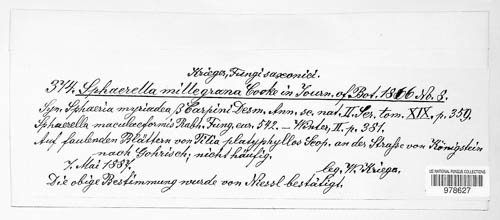 Krieger, Fungi saxonici.
374. Sphaerella millegrana Cooke in Journ. of Bot. 1866 No. 8.
Syn. Sphaeria myriadea β Carpini Desm. Ann. sc. nat. II. Ser. tom. XIX, p. 359.
Sphaerella maculaeformis Rabh. Fung. eur. 542. – Winter, II. p. 381.
Auf faulenden Blättern von Tilia platyphyllos Scop. an der Straße von Königstein
nach Gohrisch, nicht häufig.
7. Mai 1887. leg. W. Krieger.
Die obige Bestimmung wurde von Niessl bestätigt.
US NATIONAL FUNGUS COLLECTIONS
978627